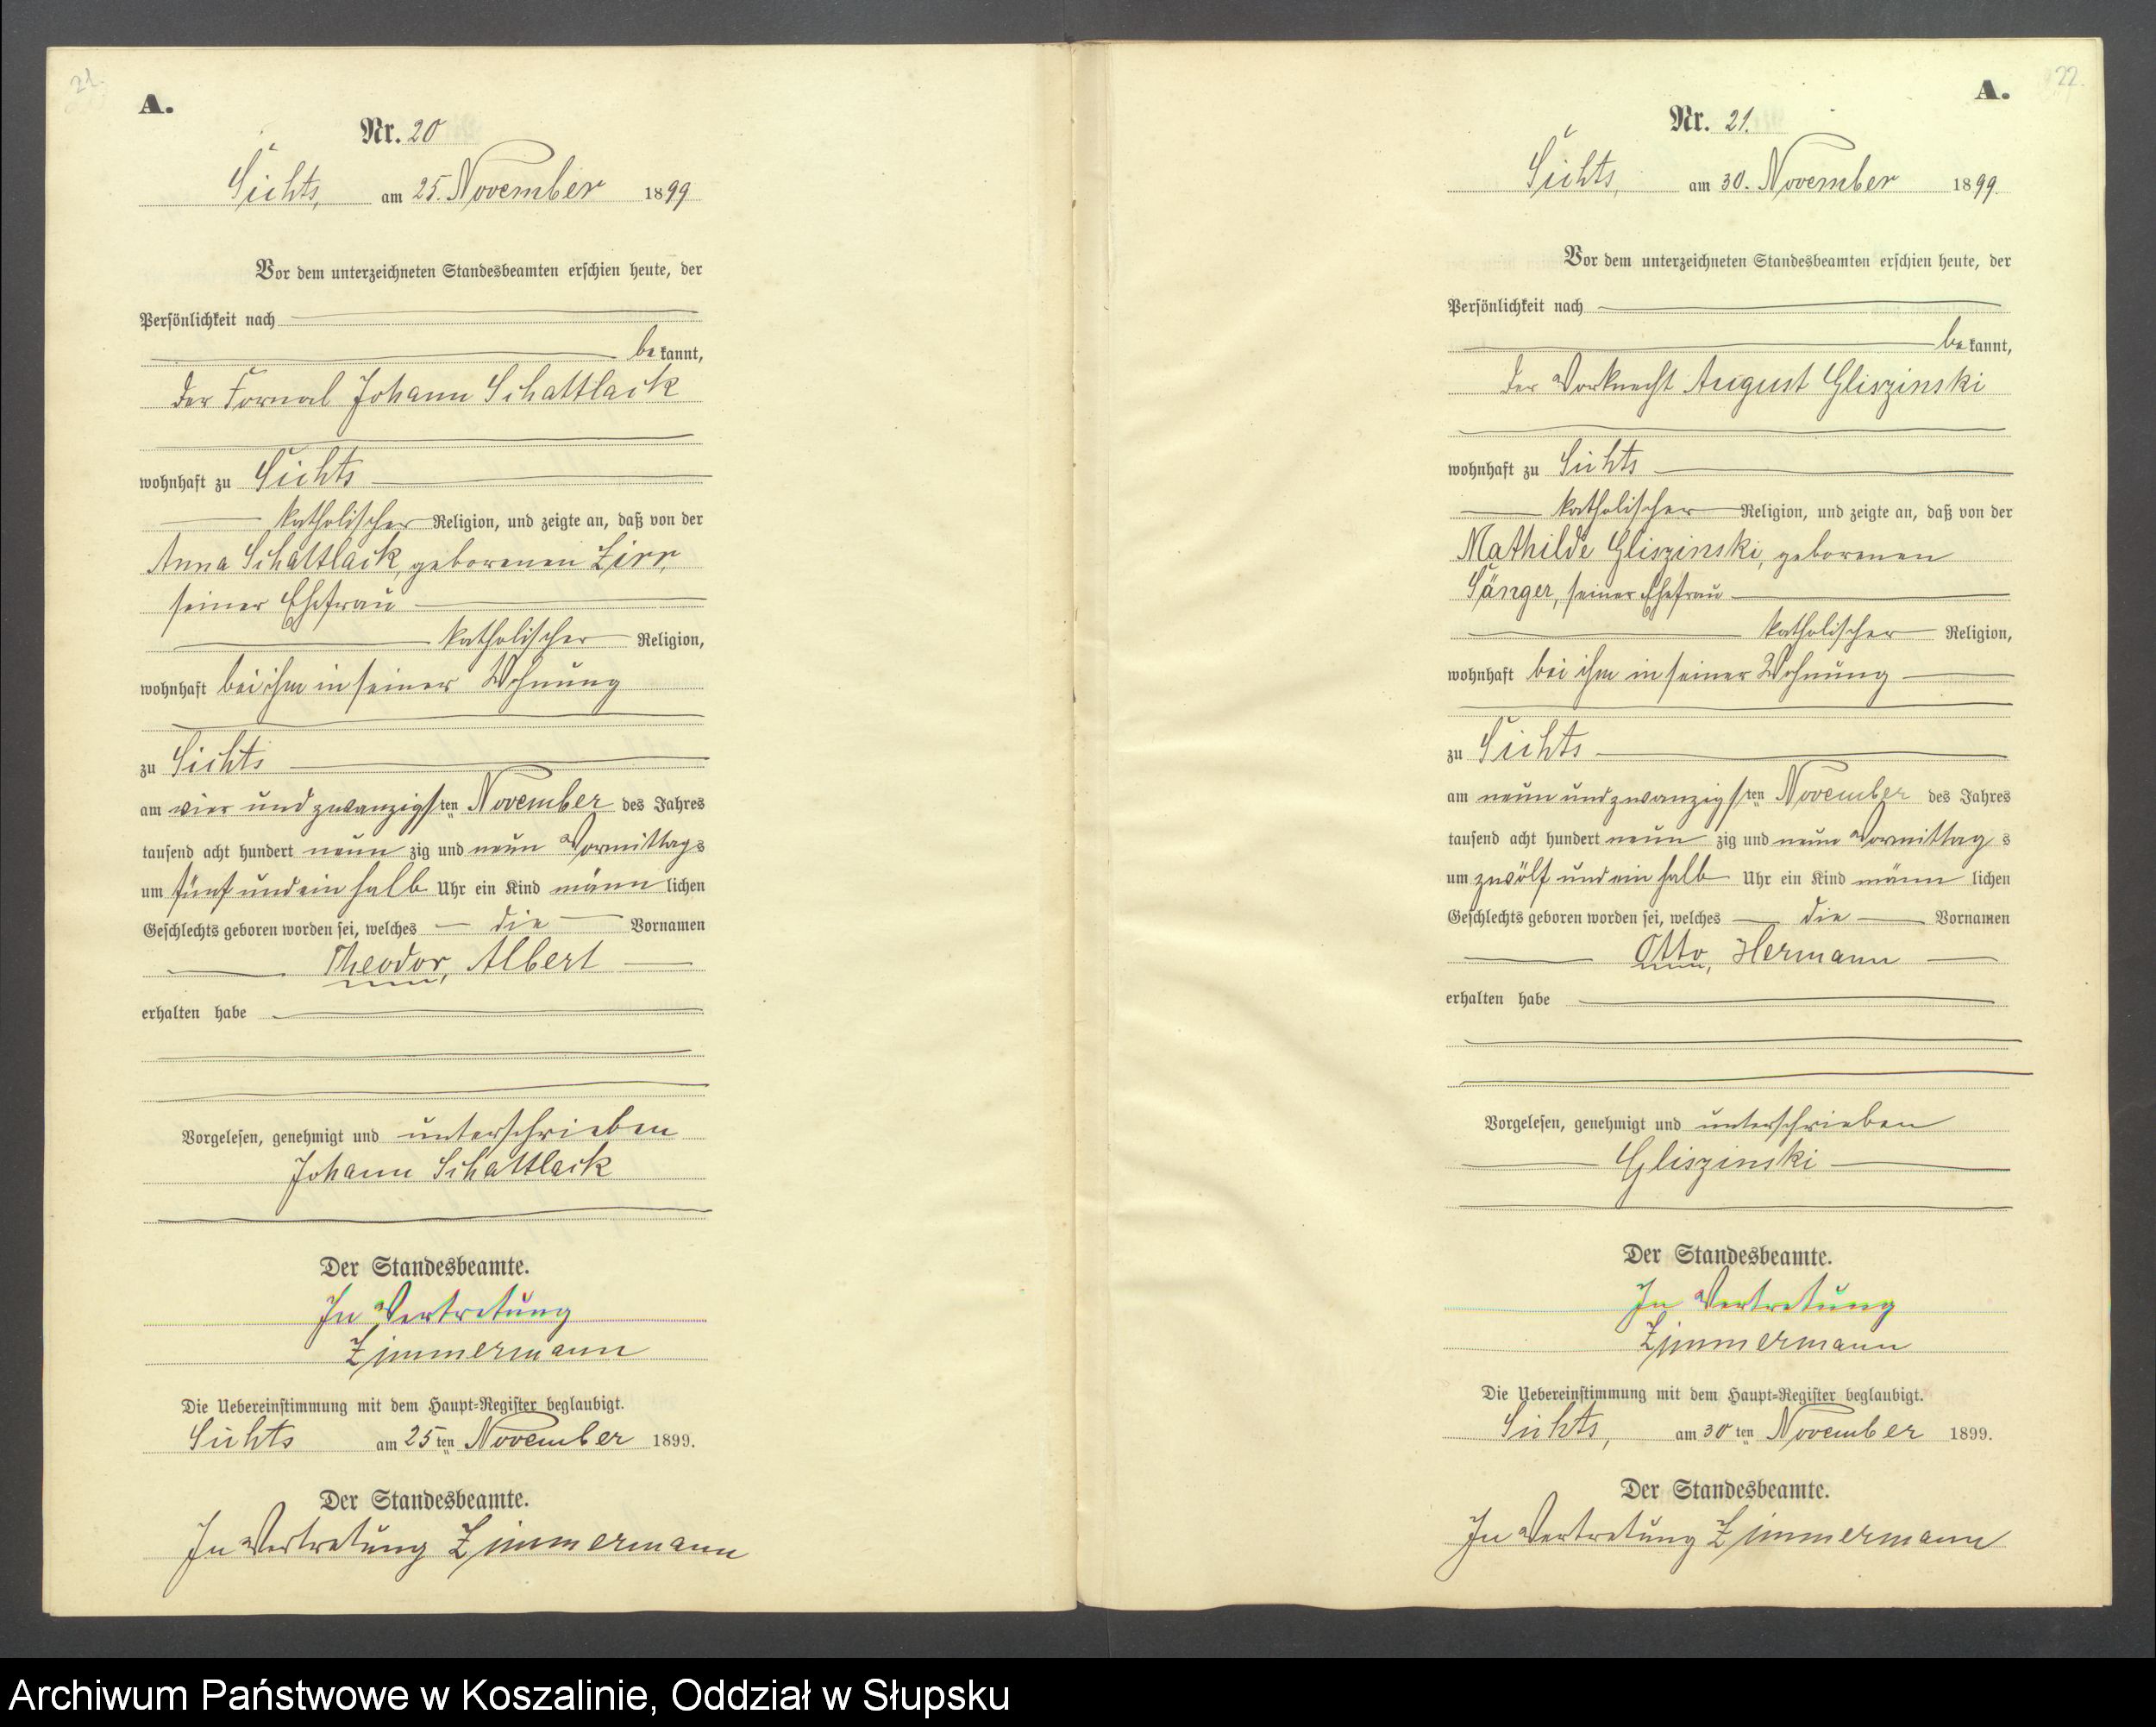 21.
A.
Nr. 20
Sichts, am 25. November 1899
Vor dem unterzeichneten Standesbeamten erschien heute, der
Persönlichkeit nach
bekannt,
der Fornal Johann Schattlack
wohnhaft zu Sichts
katholischer Religion, und zeigte an, daß von der
Anna Schattlack, geborenen Zirr,
seiner Ehefrau
katholischer Religion,
wohnhaft bei ihm in seiner Wohnung
zu Sichts
am vier und zwanzigsten November des Jahres
tausend acht hundert neunzig und neun Vormittags
um fünf und ein halb Uhr ein Kind männlichen
Geschlechts geboren worden sei, welches die Vornamen
Theodor, Albert
erhalten habe
Vorgelesen, genehmigt und unterschrieben
Johann Schattlack
Der Standesbeamte.
In Vertretung
Zimmermann
Die Uebereinstimmung mit dem Haupt=Register beglaubigt.
Sichts am 25ten November 1899.
Der Standesbeamte.
In Vertretung Zimmermann
22.
A.
Nr. 21.
Sichts, am 30. November 1899.
Vor dem unterzeichneten Standesbeamten erschien heute, der
Persönlichkeit nach
bekannt,
der Vorknecht August Gliszinski
wohnhaft zu Sichts
katholischer Religion, und zeigte an, daß von der
Mathilde Gliszinski, geborenen
Sänger, seiner Ehefrau
katholischer Religion,
wohnhaft bei ihm in seiner Wohnung
zu Sichts
am neun und zwanzigsten November des Jahres
tausend acht hundert neunzig und neun Vormittags
um zwölf und ein halb Uhr ein Kind männlichen
Geschlechts geboren worden sei, welches die Vornamen
Otto, Hermann
erhalten habe
Vorgelesen, genehmigt und unterschrieben
Gliszinski
Der Standesbeamte.
In Vertretung
Zimmermann
Die Uebereinstimmung mit dem Haupt=Register beglaubigt.
Sichts, am 30ten November 1899.
Der Standesbeamte.
In Vertretung Zimmermann
Archiwum Państwowe w Koszalinie, Oddział w Słupsku